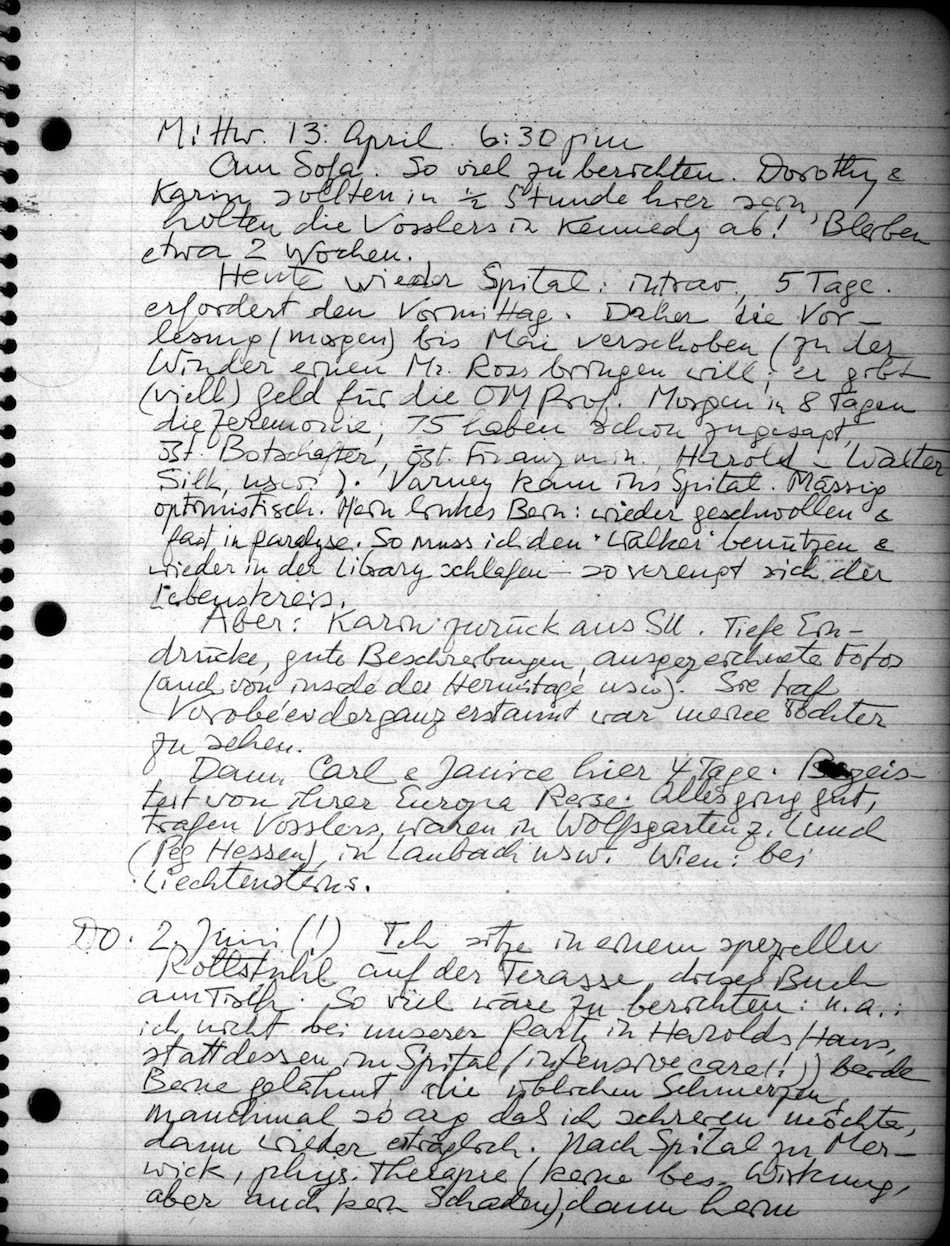 Mittw. 13. April. 6:30 pm
Am Sofa. So viel zu berichten. Dorothy &
Karin sollten in ½ Stunde hier sein,
holten die Vosslers in Kennedy ab! Bleiben
etwa 2 Wochen.
Heute wieder Spital: intrav., 5 Tage.
erfordert den Vormittag. Daher die Vor-
lesung (morgen) bis Mai verschoben (zu der
Winder einen Mr. Ross bringen will; er gibt
(viell) Geld für die OM Prof. Morgen in 8 Tagen
die Zeremonie; 75 haben schon zugesagt,
öst. Botschafter, öst. Finanzmin., Harold - Walter
Silk, usw.). Varney kam ins Spital. Mässig
optimistisch. Mein linkes Bein: wieder geschwollen &
fast in paralyse. So muss ich den "Walker" benützen &
wieder in der Library schlafen - so verengt sich der
Lebenskreis.
Aber: Karin zurück aus SU. Tiefe Ein-
drücke, gute Beschreibungen, ausgezeichnete Fotos
(auch von inside der Hermitage usw). Sie traf
Vorobéev der ganz erstaunt war meine Tochter
zu sehen.
Dann Carl & Janice hier 4 Tage. Begeis-
tert von ihrer Europa Reise. Alles ging gut,
trafen Vosslers, waren in Wolfsgarten z. Lunch
(Peg Hessen), in Laubach usw. Wien: bei
Liechtensteins.
Do. 2. Juni (!) Ich sitze in einem speziellen
Rollstuhl auf der Terasse, dieses Buch
am Tisch. So viel wäre zu berichten: u.a.:
ich nicht bei unserer Party in Harolds Haus,
stattdessen im Spital (intensive care!!) beide
Beine gelähmt, die üblichen Schmerzen,
manchmal so arg das ich schreien möchte,
dann wieder erträglich. Nach Spital zu Mer-
wick, phys. Therapie (keine bes. Wirkung,
aber auch kein Schaden), dann heim